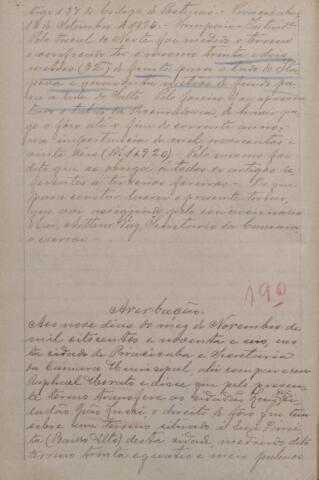 tigo 137 do Codigo de Posturas - Piracicaba
18 de Setembro de 1896 -
Pelo fiscal do Norte foi medido o terreno
e verificado ter o mesmo trinta e dois
metros (32m) de frente para o lado do Ita
peva e quarenta metros de fundo pa
ra a rua do Salto. Pelo foreiro foi apresen
tado o talão da Procuradoria, de haver pa
go o foro até o fim do corrente anno,
na importancia de mil novecentos e
vinte reis (Rs 1$920). Pelo mesmo foi
dito que se obriga a todos os artigos re
ferentes a terrenos foreiros - Do que
para constar lavrei o presente termo,
que vai assignado pelo concessionario
Eu, Secretario da Camara
o escrevo -
190
Averbação.
Aos nove dias do mez de Novembro de
mil oitocentos e noventa e um, nes
ta cidade de Piracicaba e Secretaria
da Camara Municipal, ahi compareceu
Raphael e disse que pelo presen
te termo transfere ao cidadão
dadão João o direito de foro que tem
sobre um terreno situado à rua Direi
ta (Bairro Alto) desta cidade, medindo dito
terreno trinta e quatro e meio palmos